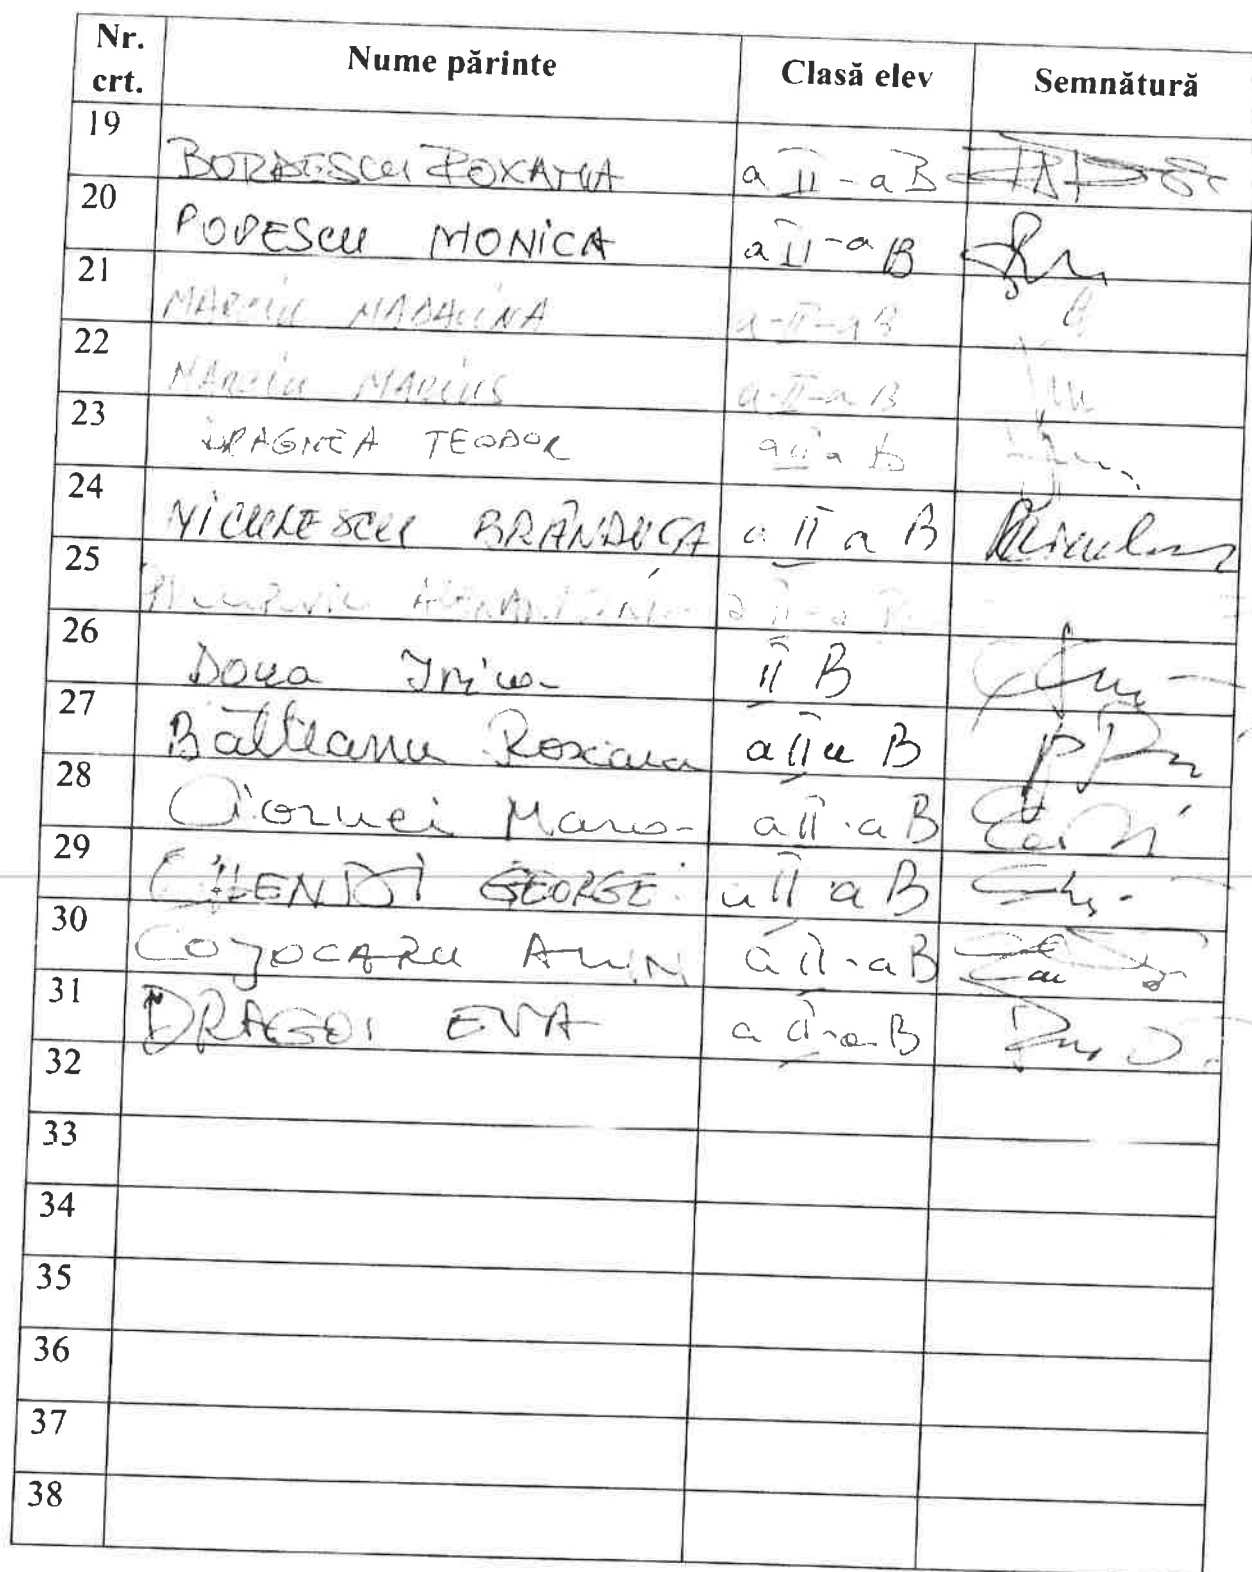 Nr. crt. Nume părinte Clasă elev Semnătură
19 BORDESCU ROXANA a II-a B
20 POPESCU MONICA a II-a B
21 MARCIU MADALINA a-II-a B
22 MARCIU MARIUS a-II-a B
23 DRAGNEA TEODOR a II a B
24 NICULESCU BRÂNDUȘA a II a B
25 a II-a B
26 Irina II B
27 Bălteanu Roxana a II a B
28 a II-a B
29 GHENDI GEORGE a II a B
30 COJOCARU ALIN a II-a B
31 DRAGOI EVA a II-a B
32
33
34
35
36
37
38